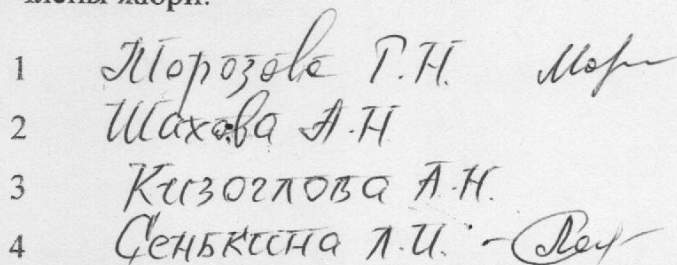 члены жюри:
1 Морозова Г.Н.
2 Шахова А.Н
3 Кизоглова А.Н.
4 Сенькина Л.И.